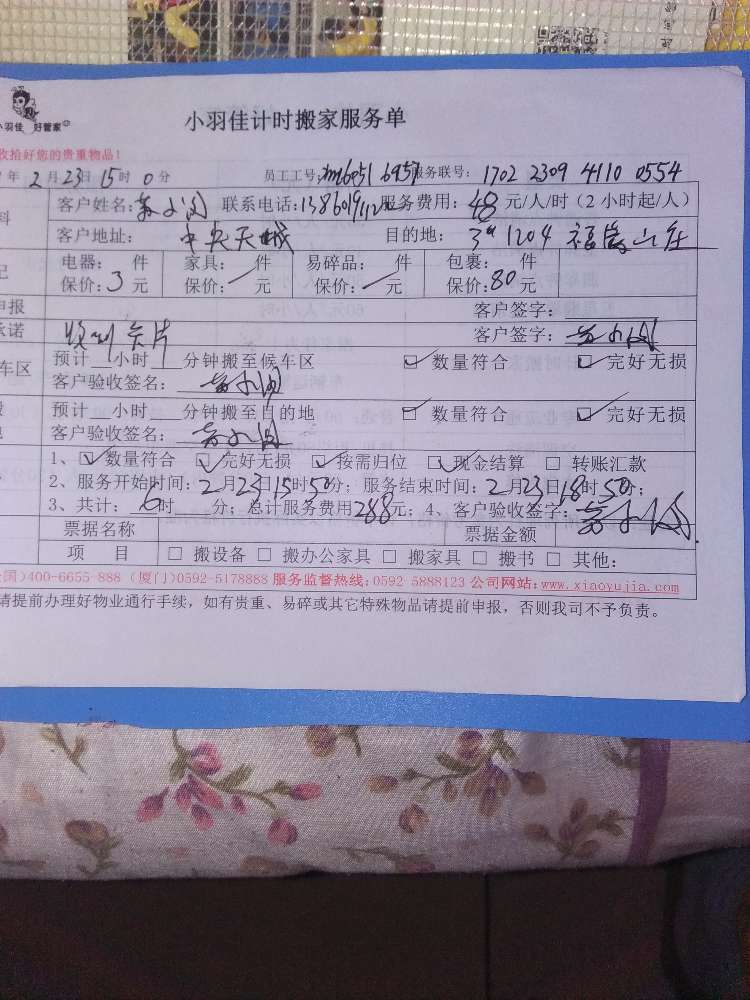 小羽佳 好管家
小羽佳计时搬家服务单
收拾好您的贵重物品！
年 2 月 23 日 15 时 0 分 员工工号: 服务联号: 1702 2309 4110 0554
客户姓名: 联系电话: 服务费用: 48 元/人/时 (2 小时起/人)
客户地址: 中央天城 目的地: 1204 福 山庄
电器: 件 家具: 件 易碎品: 件 包裹: 件
保价: 3 元 保价: 元 保价: 元 保价: 80 元
申报 客户签字:
承诺 收到卡片 客户签字:
车区 预计 小时 分钟搬至候车区 ☑ 数量符合 ☑ 完好无损
客户验收签名:
预计 小时 分钟搬至目的地 ☑ 数量符合 ☑ 完好无损
客户验收签名:
1、☑ 数量符合 ☑ 完好无损 ☑ 按需归位 ☑ 现金结算 □ 转账汇款
2、服务开始时间: 2 月 23 日 15 时 50 分; 服务结束时间: 2 月 23 日 18 时 50 分;
3、共计: 6 时 分; 总计服务费用 288 元; 4、客户验收签字:
票据名称 票据金额
项 目 □ 搬设备 □ 搬办公家具 □ 搬家具 □ 搬书 □ 其他:
国)400-6655-888 (厦门)0592-5178888 服务监督热线: 0592-5888123 公司网站: www.xiaoyujia.com
请提前办理好物业通行手续，如有贵重、易碎或其它特殊物品请提前申报，否则我司不予负责。